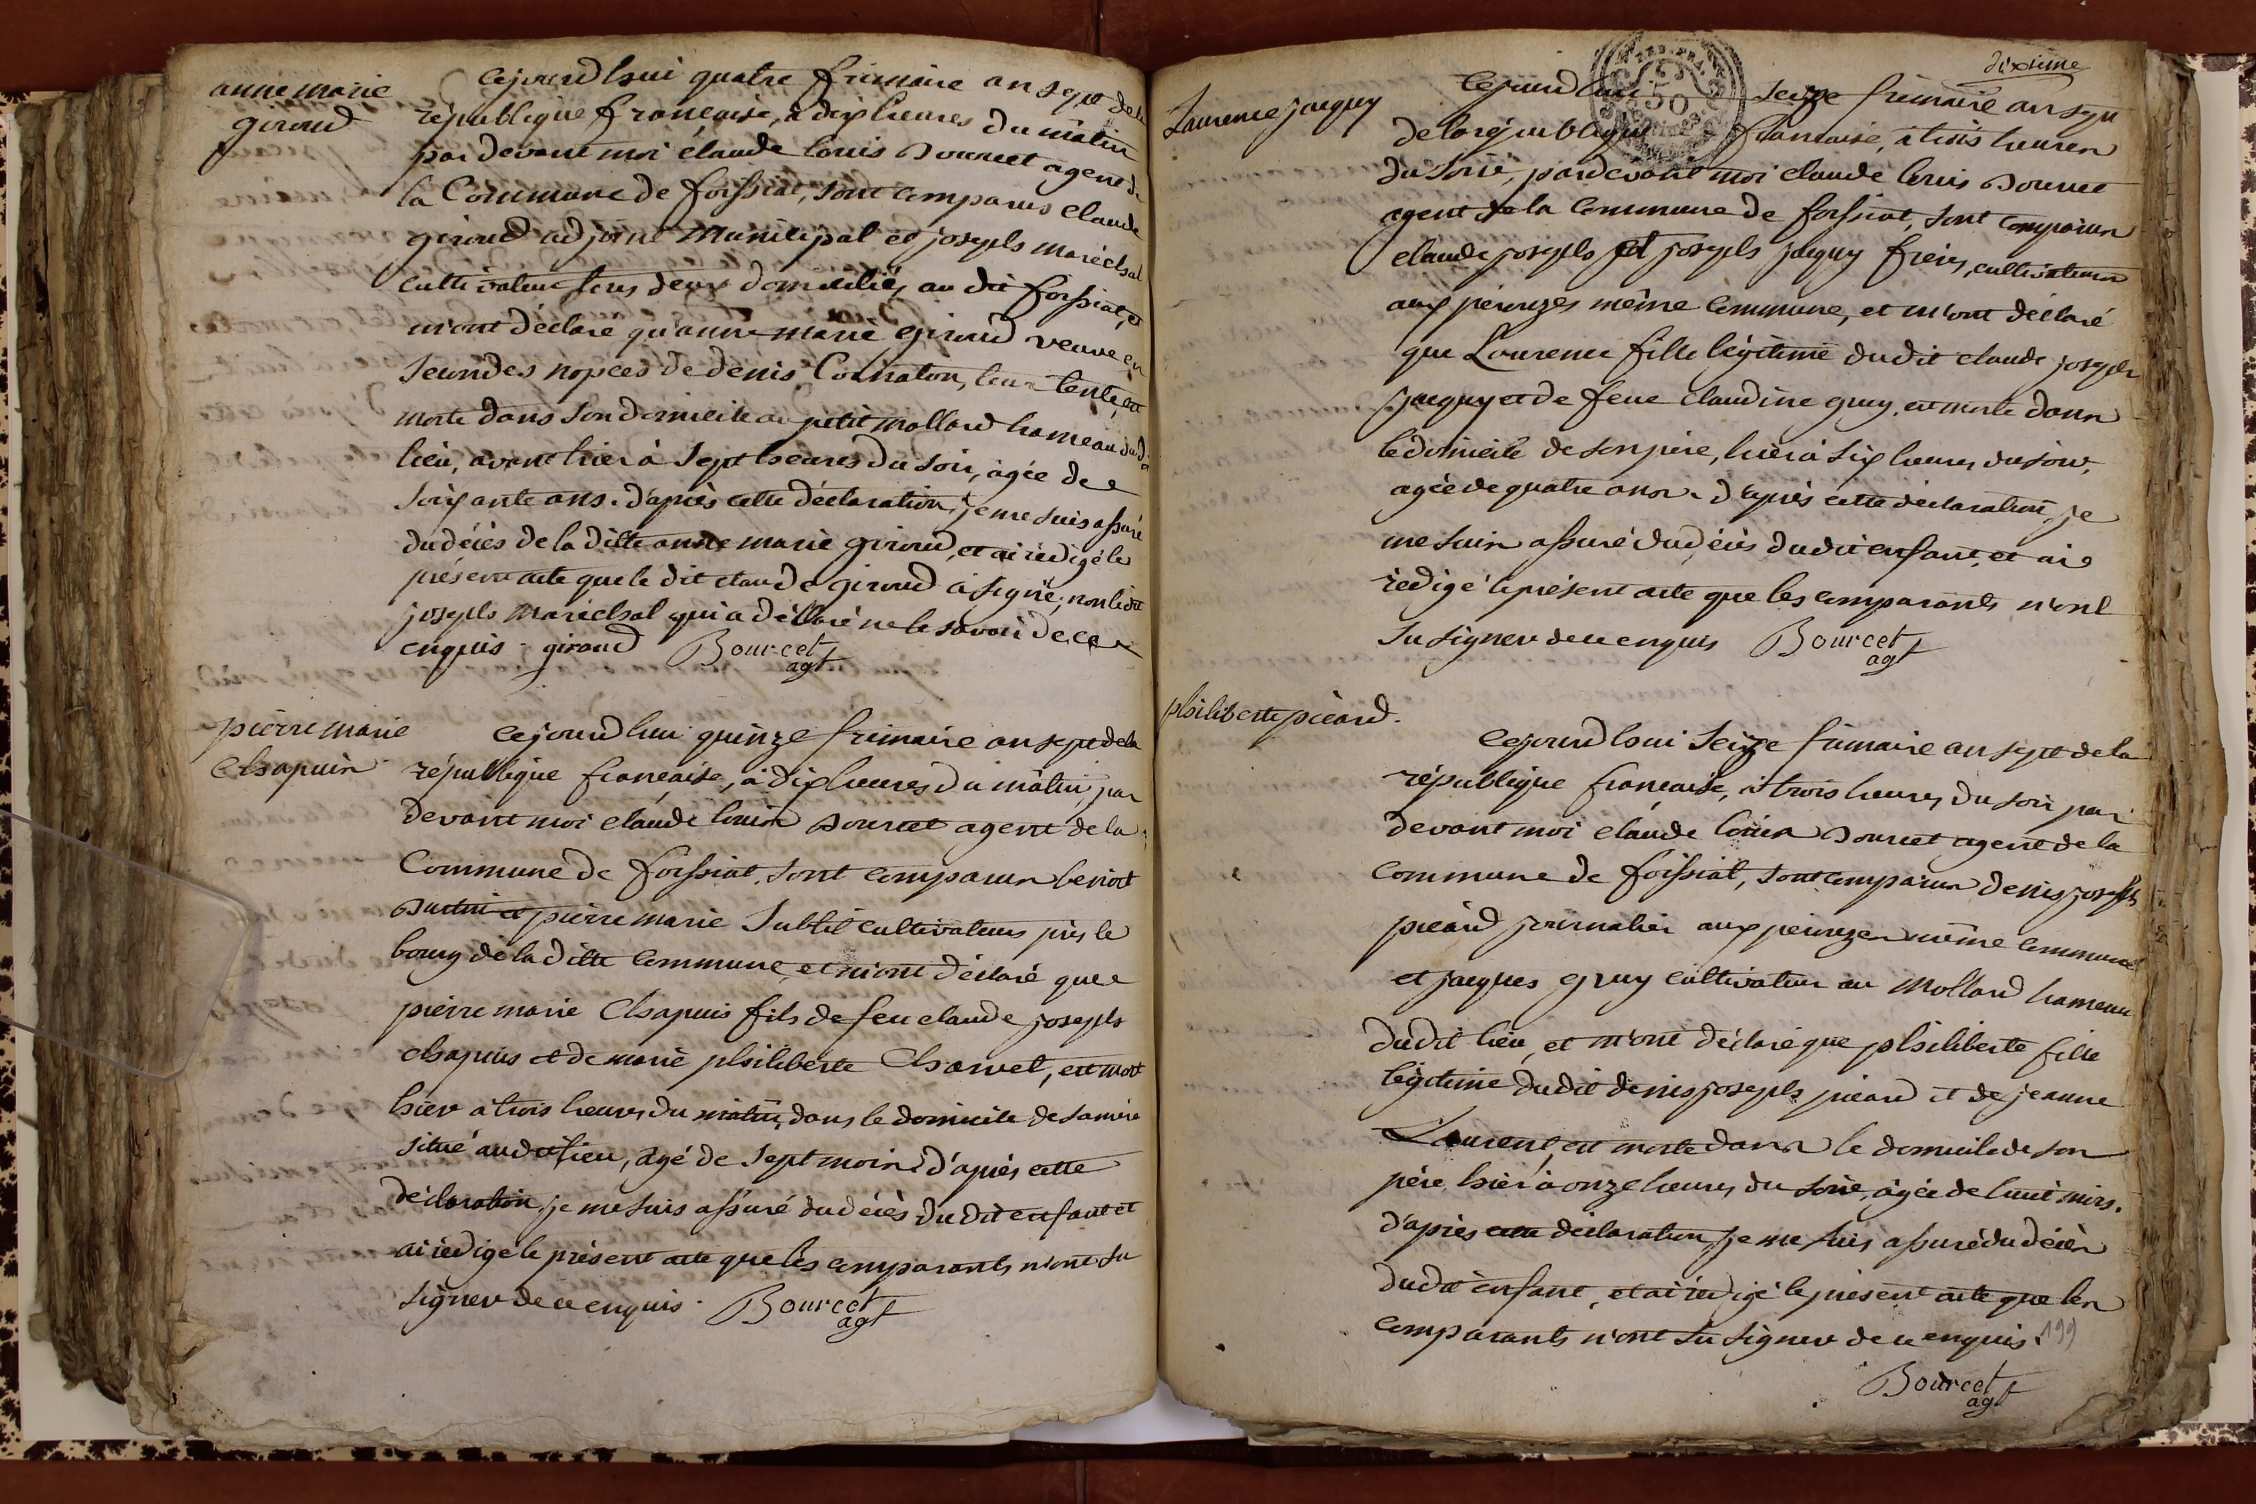 anne marie
giroud
Cejourd'hui quatre frimaire an sept de la
république française, à dix heures du matin
par devant moi claude louis Bourcet agent de
la Commune de foissiat, sont comparus claude
giroud adjoint Municipal et joseph maréchal
cultivateur tous deux domiciliés au dit foissiat, et
m'ont déclaré qu'anne marie giroud veuve en
secondes nopces de denis Cornaton, leur tente, est
morte dans son domicile au petit mollard hameau dudit
lieu, avant hier à sept heures du soir, âgée de
soixante ans. d'après cette déclaration, je me suis assuré
du décès de la ditte anne marie giroud, et ai rédigé le
présent acte que le dit claude giroud a signé, non ledit
joseph maréchal qui a déclaré ne le savoir de ce
enquis. giroud Bourcet
agt
pierre marie
Chapuis
Cejourd'hui quinze frimaire an sept de la
république française, à dix heures du matin, par
devant moi claude louis Bourcet agent de la
Commune de foissiat, sont comparus benoit
et pierre marie Subtil cultivateurs près le
bourg de la ditte Commune, et m'ont déclaré que
pierre marie Chapuis fils de feu claude joseph
chapuis et de marie philiberte Charvet, est mort
hier à trois heures du matin, dans le domicile de sa mère
situé au dit lieu, âgé de sept mois. d'après cette
déclaration, je me suis assuré du décès du dit enfant et
ai rédigé le présent acte que les comparants n'ont su
signer de ce enquis. Bourcet
agt
dixième
50
Laurence jacquy
Cejourd'hui seize frimaire an sept
de la république française, à trois heures
du soir, pardevant moi claude louis Bourcet
agent de la Commune de foissiat, sont comparus
claude joseph et joseph jacquy frères, cultivateurs
aux peruzes même commune, et m'ont déclaré
que Laurence fille légitime dudit claude joseph
jacquy et de feue claudine gruy, est morte dans
le domicile de son père, hier à six heures du soir,
agée de quatre ans. d'après cette déclaration, je
me suis assuré du décès du dit enfant, et ai
rédigé le présent acte que les comparants n'ont
su signer de ce enquis Bourcet
agt
philiberte picard.
Cejourd'hui seize frimaire an sept de la
république française, à trois heures du soir par
devant moi claude louis Bourcet agent de la
commune de foissiat, sont comparus denis joseph
picard journalier aux peruzes même commune
et jacques gruy cultivateur au Mollard hameau
dudit lieu, et m'ont déclaré que philiberte fille
légitime dudit denis joseph picard et de jeanne
Laurent, est morte dans le domicile de son
père hier à onze heures du soir, âgée de huit mois.
d'après cette déclaration je me suis assuré du décès
dudit enfant, et ai rédigé le présent acte que les
comparants n'ont su signer de ce enquis.
199
Bourcet
agt